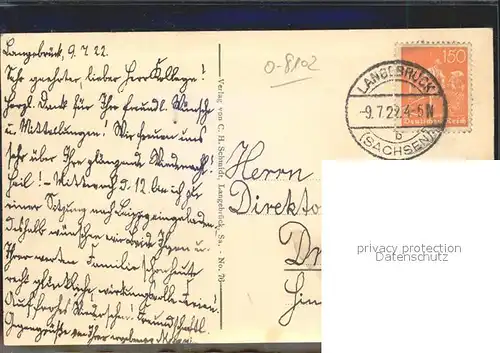 Langebrück, 9.7.22.
Sehr geehrter, lieber Herr Kollege!
Herzl. Dank für Ihre freundl. Wünsche
u. Mitteilungen! Wir freuen uns
sehr über Ihre glänzende
Heil! – Mittwoch d. 12. bin ich zu
einer Sitzung nach eingeladen,
deshalb wünschen wir Ihnen u.
Ihrer werten Familie schon heute
recht glückliche, wirkungsvolle Ferien!
Auf frohes Wiedersehen! Freundschaftl.
Gegengrüße von Ihrer
Verlag von C. H. Schmidt, Langebrück, Sa. - No. 70
0-8102
LANGEBRÜCK
-9.7.22.4-5N
b
(SACHSEN)
150
Deutsches Reich
Herrn
Direkto
privacy protection
Datenschutz